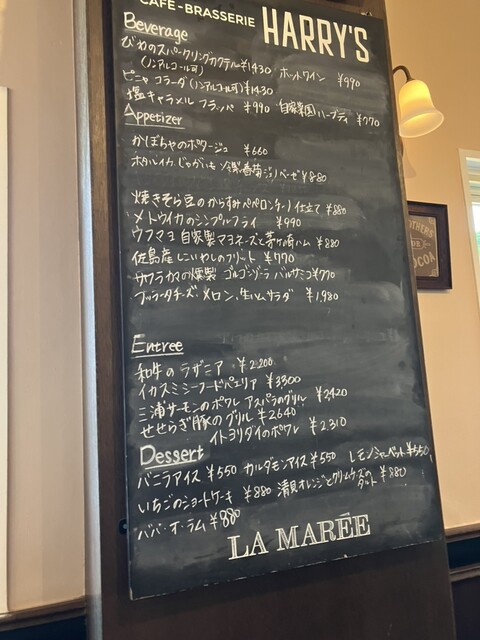 CAFE-BRASSERIE HARRY'S
Beverage
びわのスパークリングカクテル ¥1430
(ノンアルコール可) ホットワイン ¥990
ピニャ コラーダ(ノンアルコール可) ¥1430
塩キャラメル フラッペ ¥990 自家菜園ハーブティ ¥770
Appetizer
かぼちゃのポタージュ ¥660
ホタルイカ、じゃがいも 春菊ジェノベーゼ ¥880
焼きそら豆のからすみペペロンチーノ仕立て ¥880
メトウイカのシンプルフライ ¥990
ウフマヨ 自家製マヨネーズと茅ヶ崎ハム ¥880
佐島産しこいわしのフリット ¥770
サワラカマの燻製 ゴルゴンゾーラ バルサミコ ¥770
ブッラータチーズ、メロン、生ハムサラダ ¥1,980
Entree
和牛のラザニア ¥2,200
イカスミシーフードパエリア ¥3300
三浦サーモンのポワレ アスパラのグリル ¥2420
せせらぎ豚のグリル ¥2640
イトヨリダイのポワレ ¥2,310
Dessert
バニラアイス ¥550 カルダモンアイス ¥550 レモンシャーベット ¥550
いちごのショートケーキ ¥880 清見オレンジとクリームチーズの
タルト ¥880
ババ・オ・ラム ¥880
LA MARÉE